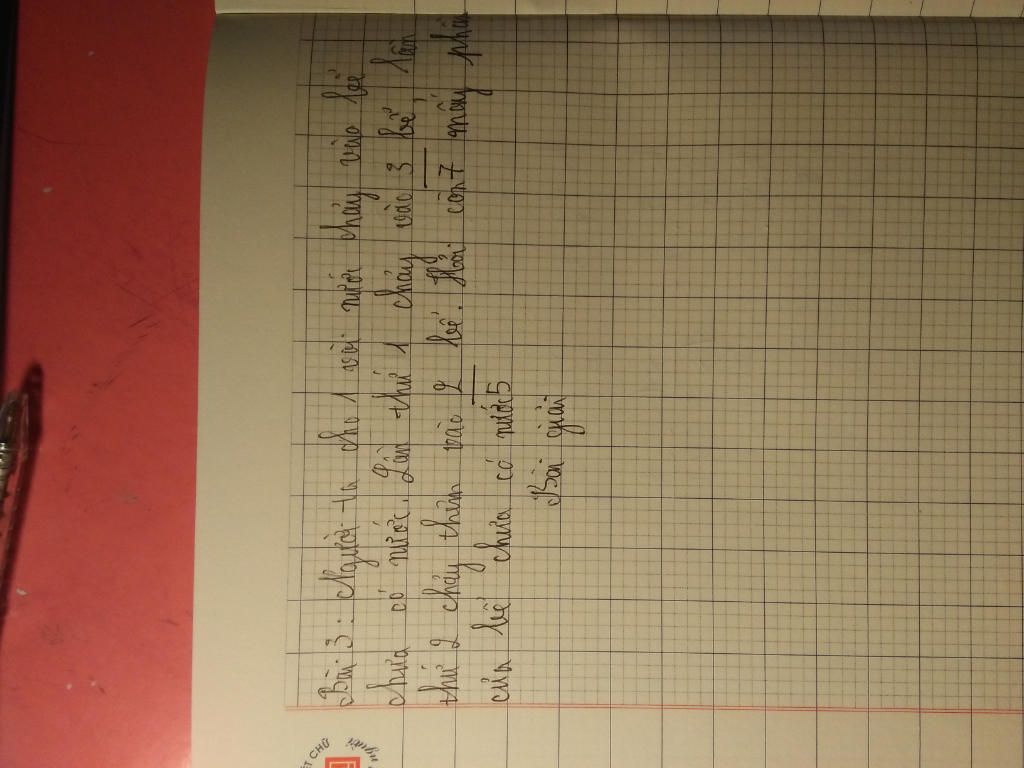 Bài 3: Người ta cho 1 vòi nước chảy vào bể
chưa có nước. Lần thứ 1 chảy vào 3/7 bể, lần
thứ 2 chảy thêm vào 2/5 bể. Hỏi còn mấy phần
của bể chưa có nước
Bài giải
ẾT CHỮ
người